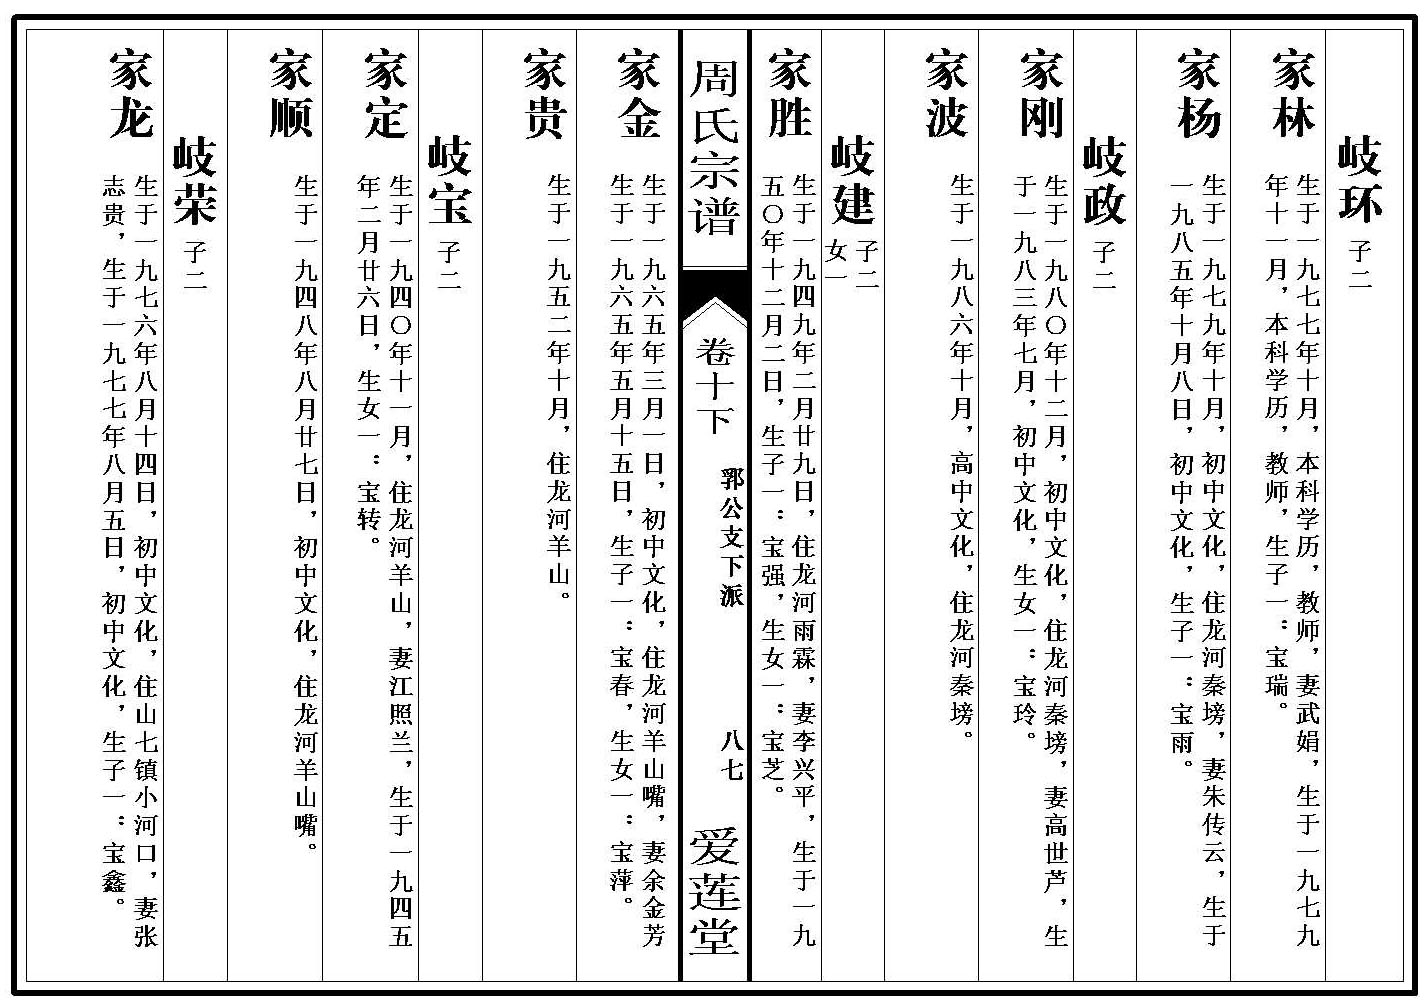 岐环 子二
家林
生于一九七七年十月，本科学历，教师，妻武娟，生于一九七九
年十一月，本科学历，教师，生子一：宝瑞。
家杨
生于一九七九年十月，初中文化，住龙河秦塝，妻朱传云，生于
一九八五年十月八日，初中文化，生子一：宝雨。
岐政 子二
家刚
生于一九八〇年十二月，初中文化，住龙河秦塝，妻高世芦，生
于一九八三年七月，初中文化，生女一：宝玲。
家波
生于一九八六年十月，高中文化，住龙河秦塝。
岐建 子二
女一
家胜
生于一九四九年二月廿九日，住龙河雨霖，妻李兴平，生于一九
五〇年十二月二日，生子一：宝强，生女一：宝芝。
周氏宗谱
卷十下
郭公支下派
八七
爱莲堂
家金
生于一九六五年三月一日，初中文化，住龙河羊山嘴，妻余金芳
生于一九六五年五月十五日，生子一：宝春，生女一：宝萍。
家贵
生于一九五二年十月，住龙河羊山。
岐宝 子二
家定
生于一九四〇年十一月，住龙河羊山，妻江照兰，生于一九四五
年二月廿六日，生女一：宝转。
家顺
生于一九四八年八月廿七日，初中文化，住龙河羊山嘴。
岐荣 子二
家龙
生于一九七六年八月十四日，初中文化，住山七镇小河口，妻张
志贵，生于一九七七年八月五日，初中文化，生子一：宝鑫。